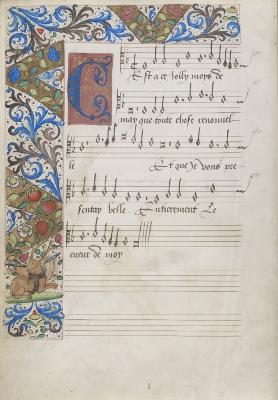 Est a ce Jolly moys de
may que toute chose renouvel
le Et que Je vous pre
sentay belle Entierement Le
cueur de moy